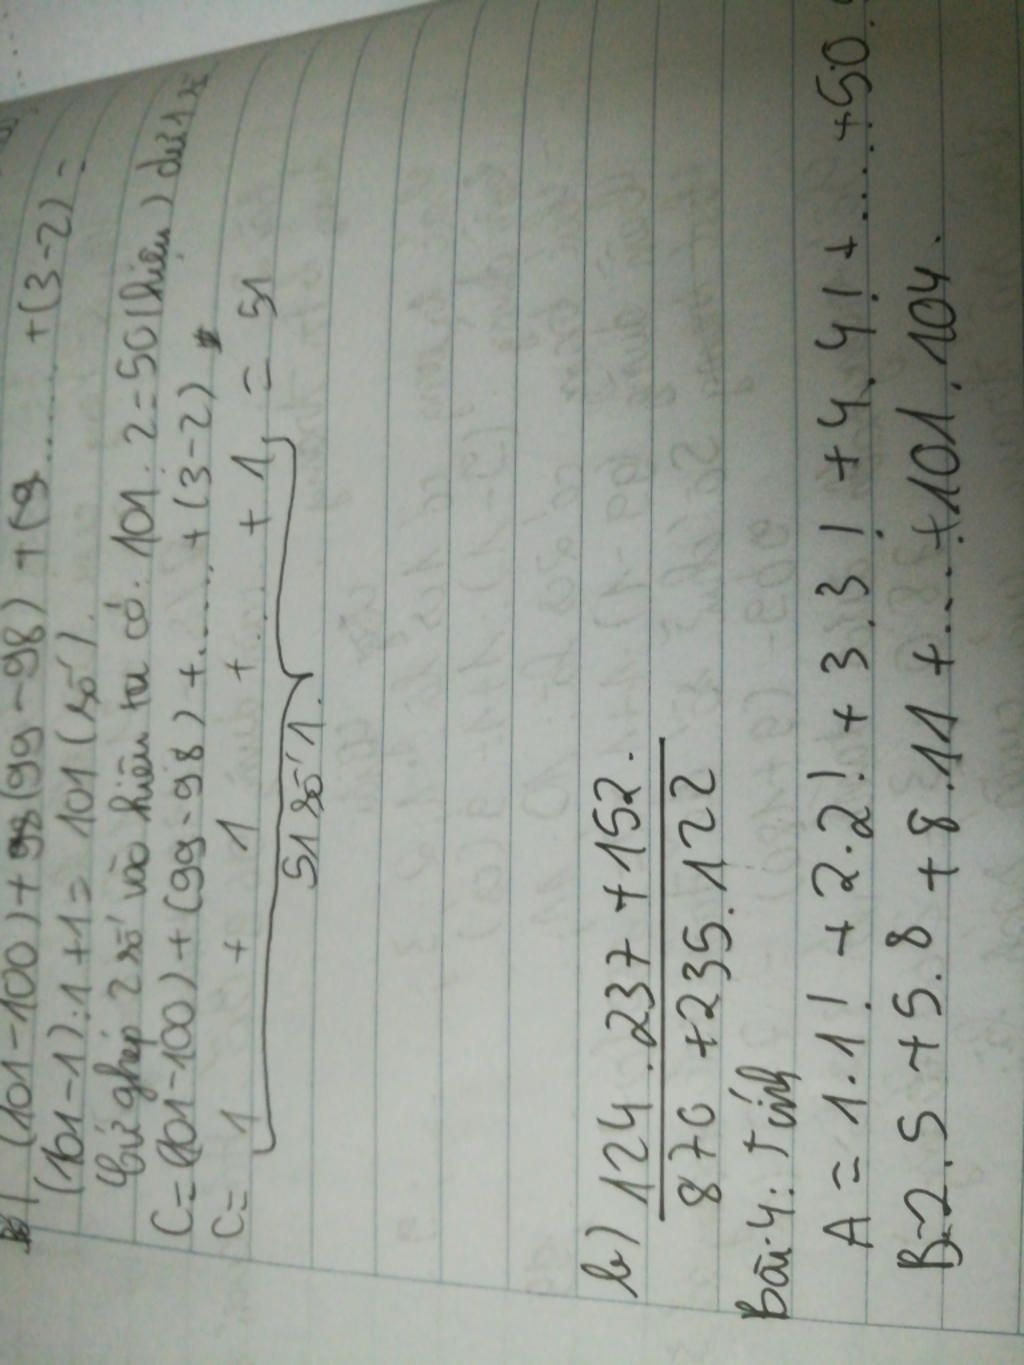 (101-100)+98(99-98)+(9......+(3-2)-
(101-1):1+1=101(số).
Cứ ghép 2 số vào hiệu ta có: 101:2=50(hiệu) dư 1 số
C=(101-100)+(99-98)+.....+(3-2)
C= 1 + 1 + .... + 1 = 51
51 số 1.
b) 124.237+152.
870+235.122
Bài 4: Tính
A=1.1!+2.2!+3.3!+4.4!+....+50.
B=2.5+5.8+8.11+....+101.104.